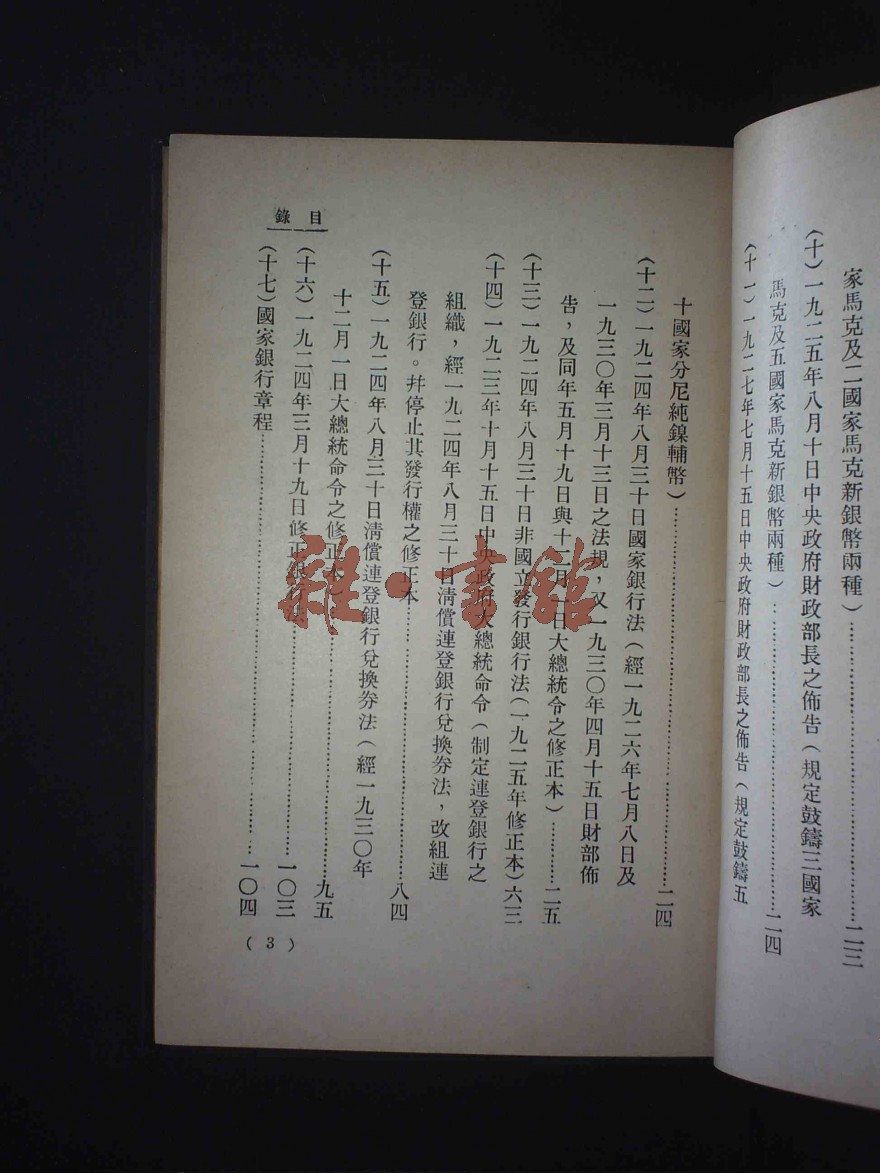 家馬克及二國家馬克新銀幣兩種）……二三
（十）一九二五年八月十日中央政府財政部長之佈告（規定鼓鑄三國家
馬克及五國家馬克新銀幣兩種）……二四
（十一）一九二七年七月十五日中央政府財政部長之佈告（規定鼓鑄五
十國家分尼純鎳輔幣）……二四
（十二）一九二四年八月三十日國家銀行法（經一九二六年七月八日及
一九三〇年三月十三日之法規，又一九三〇年四月十五日財部佈
告，及同年五月十九日與十二月一日大總統令之修正本）……二五
（十三）一九二四年八月三十日非國立發行銀行法（一九二五年修正本）六三
（十四）一九二三年十月十五日中央政府大總統命令（制定連登銀行之
組織，經一九二四年八月三十日淸償連登銀行兌換券法，改組連
登銀行。幷停止其發行權之修正本……八四
（十五）一九二四年八月三十日淸償連登銀行兌換券法（經一九三〇年
十二月一日大總統命令之修正本）……九五
（十六）一九二四年三月十九日修正銀行法……一〇三
（十七）國家銀行章程……一〇四
目錄
（3）
雜·書館